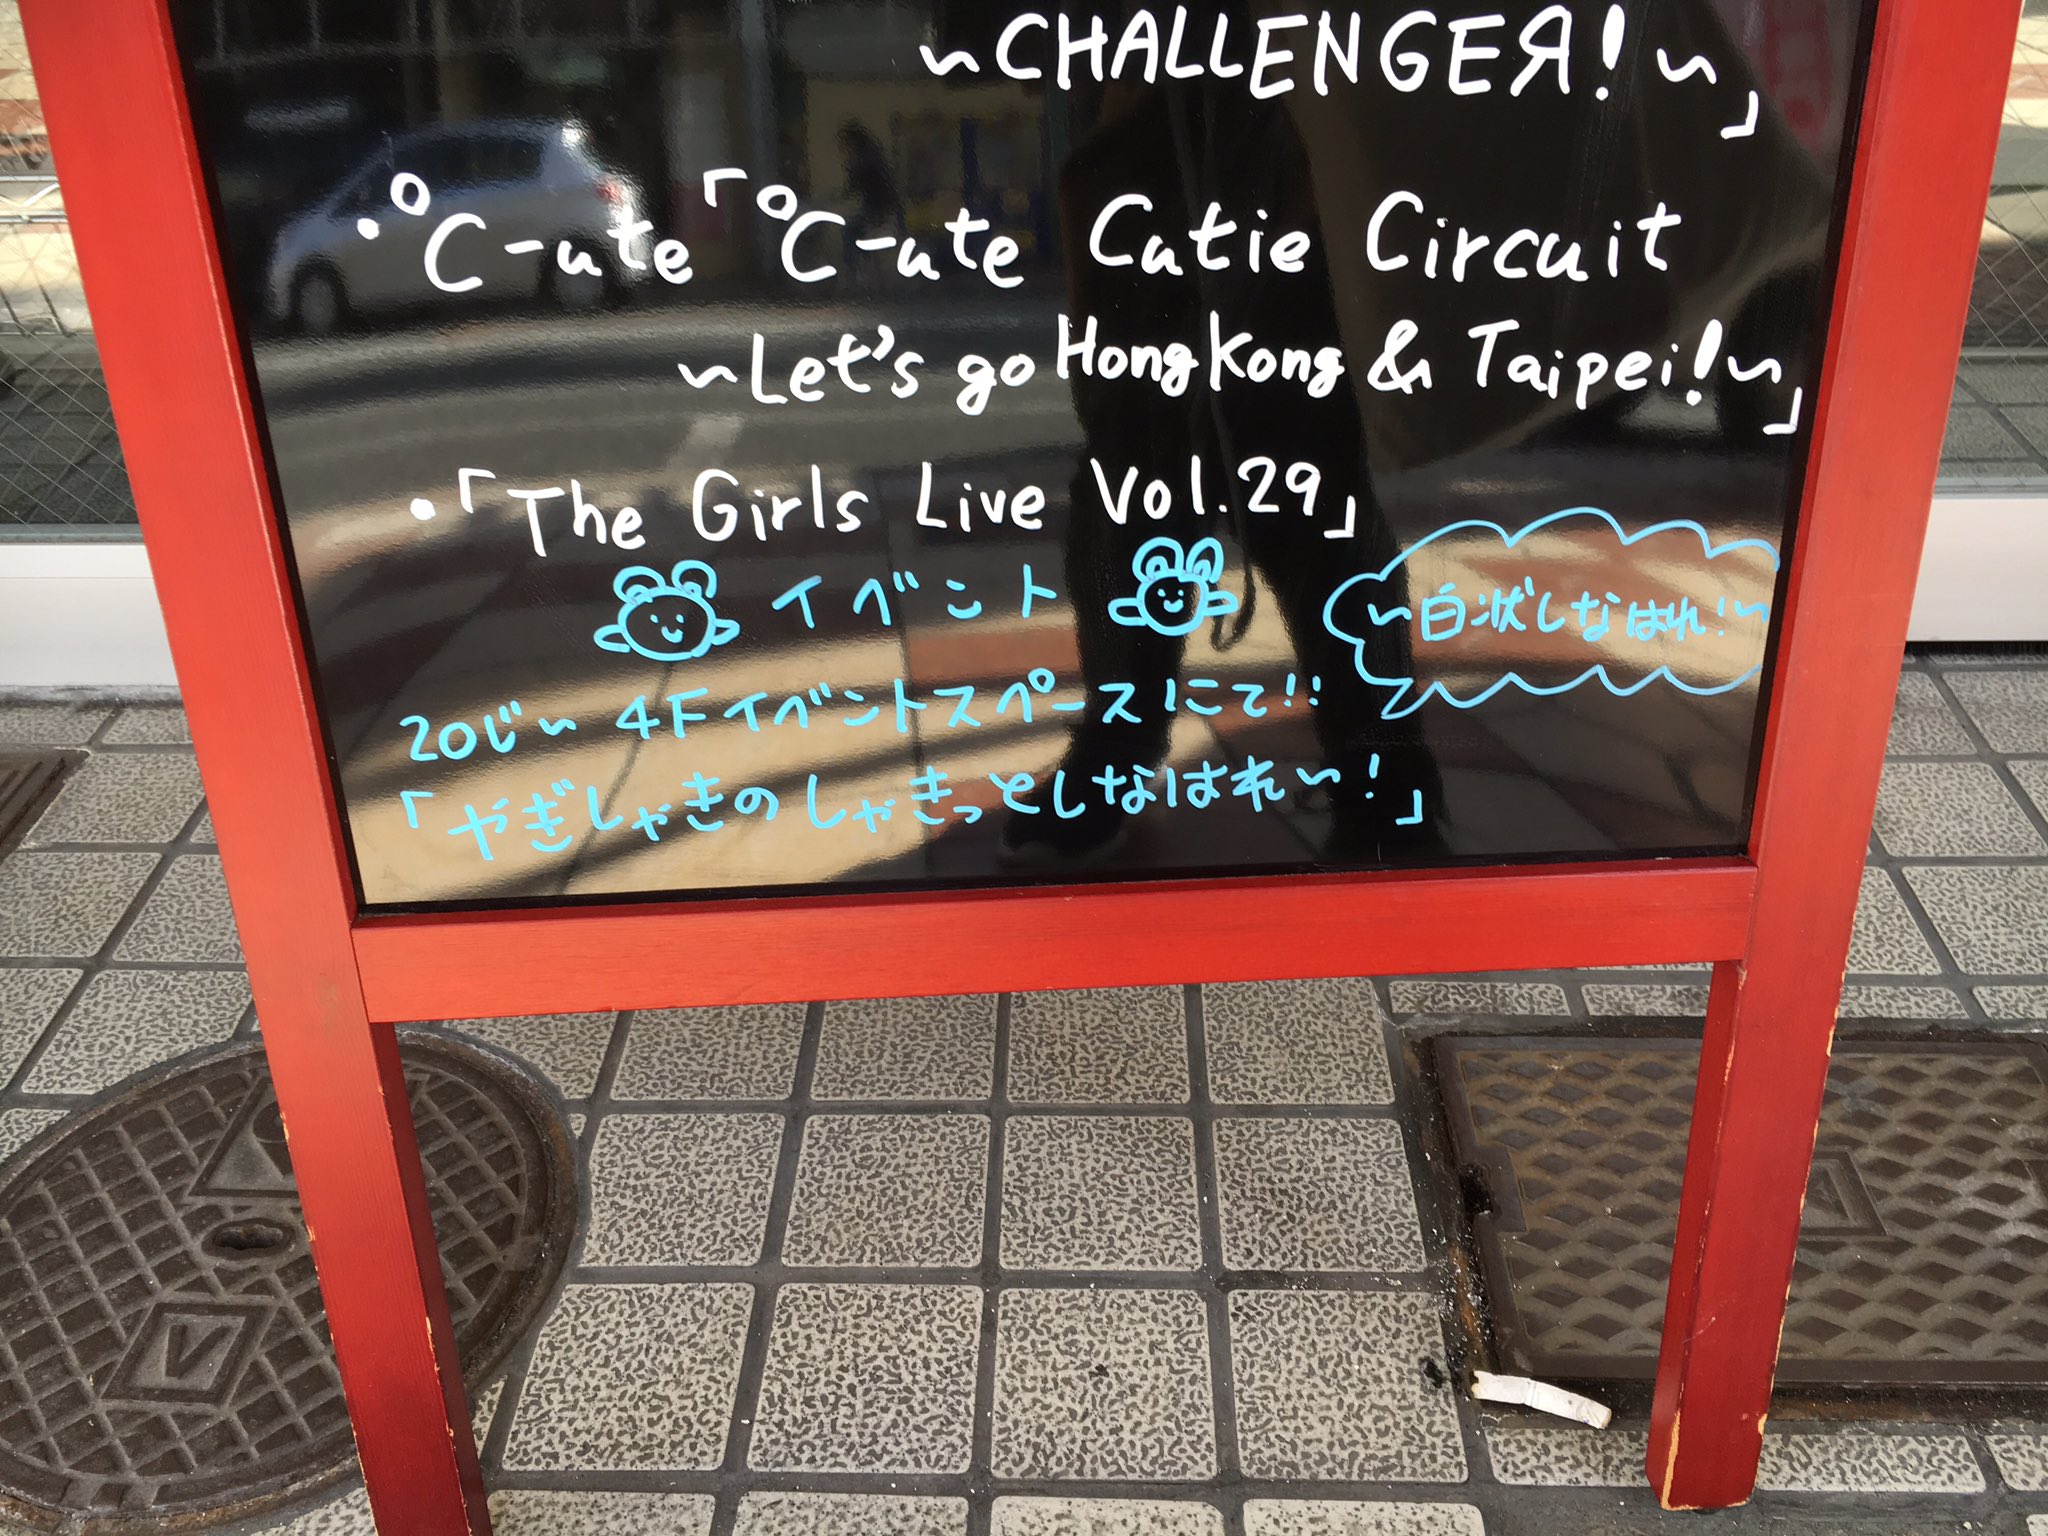 ~CHALLENGEЯ!~」
・℃-ute「℃-ute Cutie Circuit
~Let's go Hong Kong & Taipei!~」
・「The Girls Live Vol.29」
イベント
~白状しなはれ!~
20じ~ 4Fイベントスペースにて!!
「やぎしゃきのしゃきっとしなはれ~!」